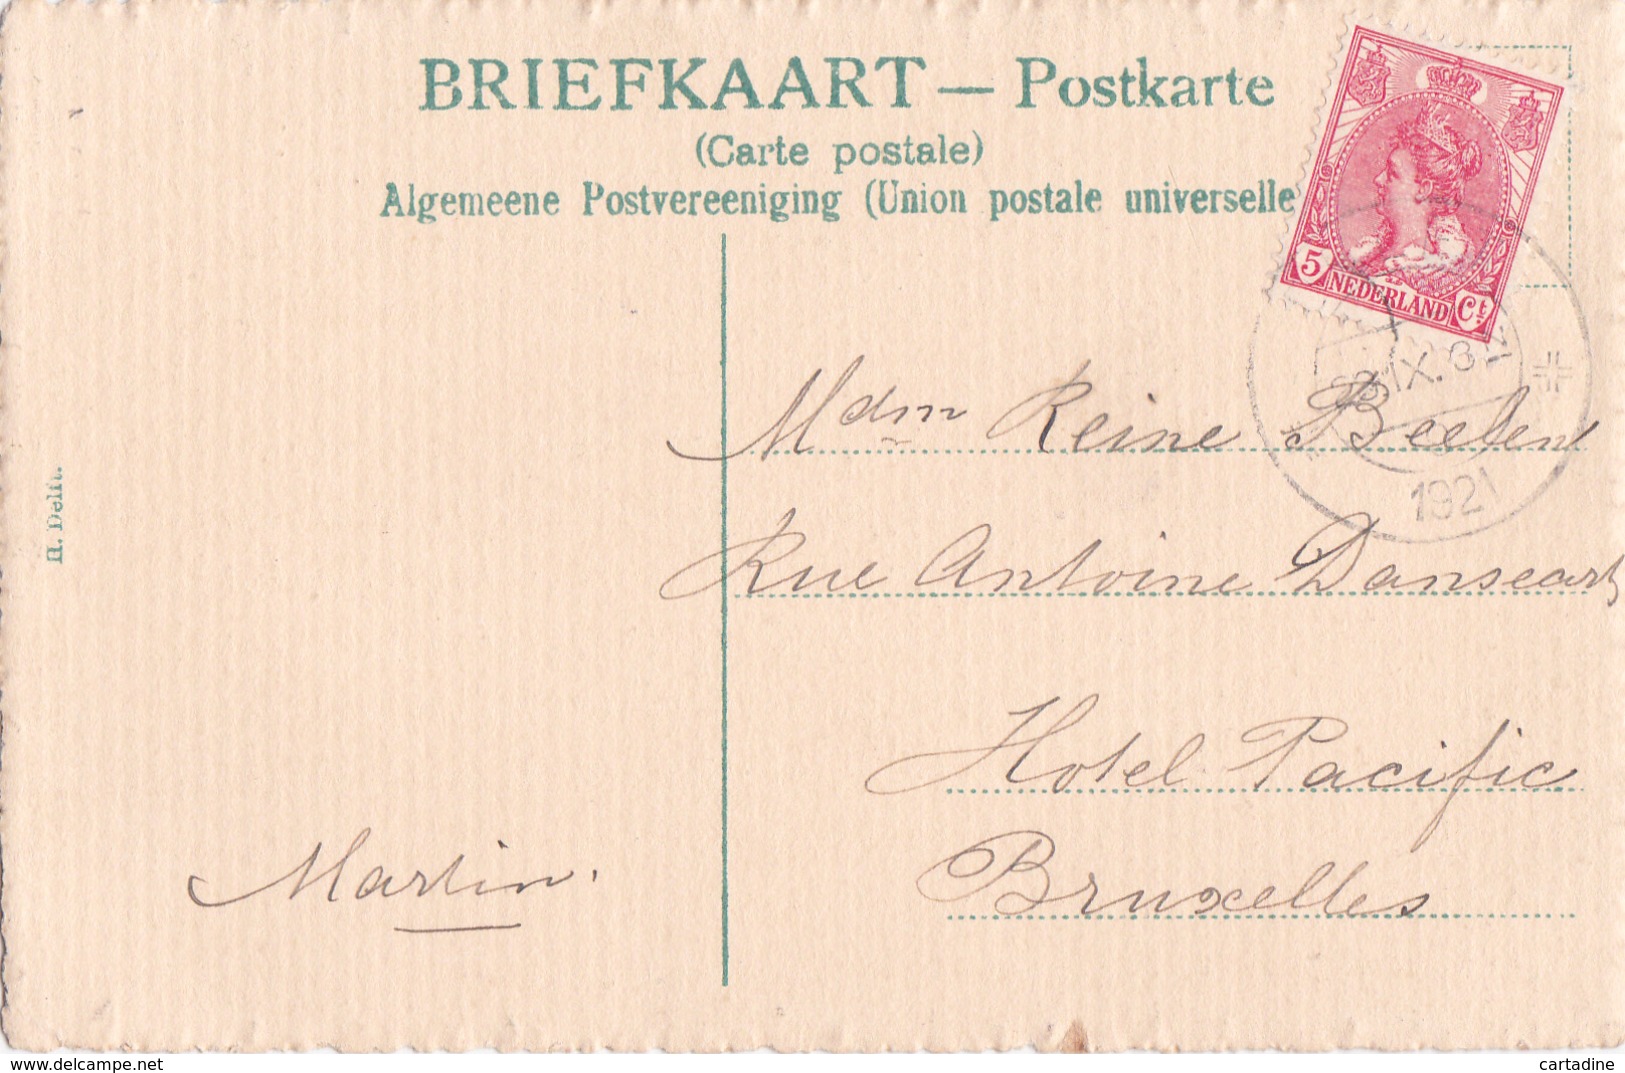 BRIEFKAART — Postkarte
(Carte postale)
Algemeene Postvereeniging (Union postale universelle
5 NEDERLAND Ct.
IX. 8
1921
Mdm Reine Beelen
Rue Antoine Danseart
Hotel Pacific
Bruxelles
Martin.
H. Delft.
www.delcampe.net
cartadine